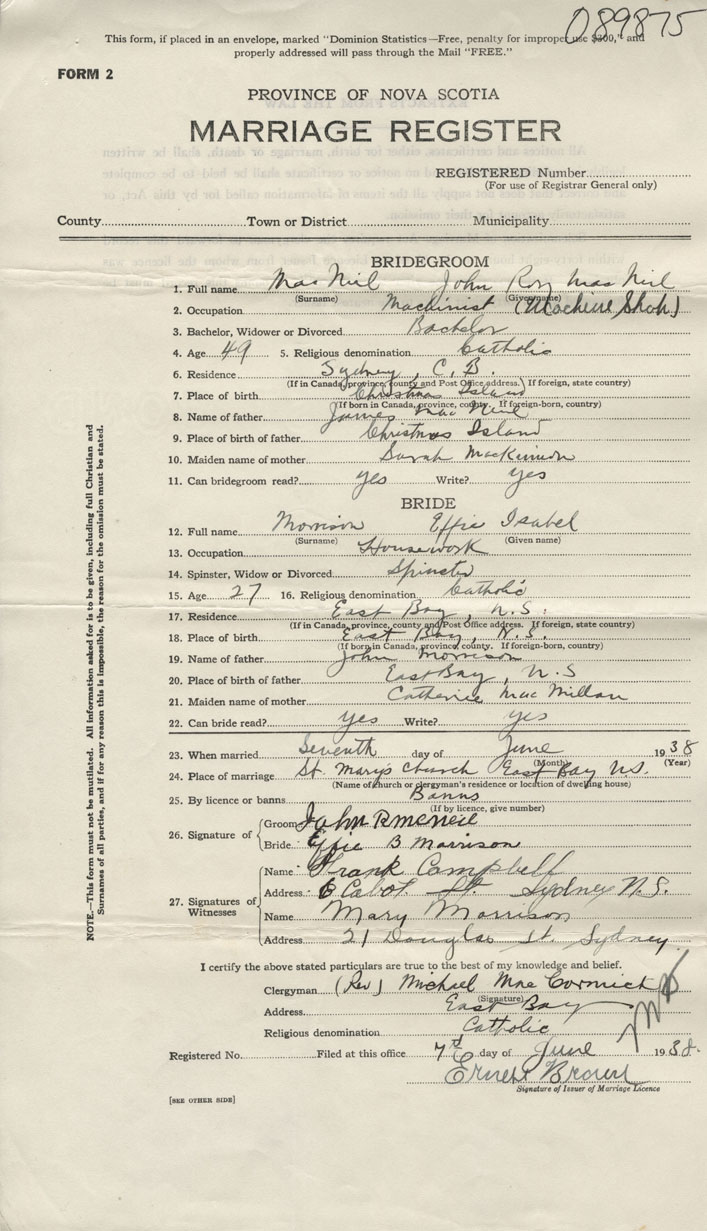 089875
This form, if placed in an envelope, marked "Dominion Statistics—Free, penalty for improper use $300," and
properly addressed will pass through the Mail "FREE."
FORM 2
PROVINCE OF NOVA SCOTIA
MARRIAGE REGISTER
REGISTERED Number
(For use of Registrar General only)
County Town or District Municipality
BRIDEGROOM
1. Full name MacNeil John Roy MacNeil
(Surname) (Given name)
2. Occupation Machinist (Machine Shop)
3. Bachelor, Widower or Divorced Bachelor
4. Age 49 5. Religious denomination Catholic
6. Residence Sydney, C. B.
(If in Canada, province, county and Post Office address. If foreign, state country)
7. Place of birth Christmas Island
(If born in Canada, province, county. If foreign-born, country)
8. Name of father James MacNeil
9. Place of birth of father Christmas Island
10. Maiden name of mother Sarah MacKinnon
11. Can bridegroom read? yes Write? yes
BRIDE
12. Full name Morrison Effie Isabel
(Surname) (Given name)
13. Occupation Housework
14. Spinster, Widow or Divorced Spinster
15. Age 27 16. Religious denomination Catholic
17. Residence East Bay, N.S.
(If in Canada, province, county and Post Office address. If foreign, state country)
18. Place of birth East Bay, N.S.
(If born in Canada, province, county. If foreign-born, country)
19. Name of father John Morrison
20. Place of birth of father East Bay, N.S
21. Maiden name of mother Catherine MacMillan
22. Can bride read? yes Write? yes
23. When married Seventh day of June 1938
(Month) (Year)
24. Place of marriage St. Mary's Church East Bay N.S.
(Name of church or clergyman's residence or location of dwelling house)
25. By licence or banns Banns
(If by licence, give number)
26. Signature of Groom John R McNeil
Bride Effie B Morrison
27. Signatures of Witnesses
Name Frank Campbell
Address 6 Cabot St. Sydney N.S.
Name Mary Morrison
Address 21 Douglas St. Sydney
I certify the above stated particulars are true to the best of my knowledge and belief.
Clergyman (Rev) Michael MacCormick
(Signature)
Address East Bay
Religious denomination Catholic
Registered No. Filed at this office 7th day of June 1938.
Ernest Brown
Signature of Issuer of Marriage Licence
[SEE OTHER SIDE]
NOTE.—This form must not be mutilated. All information asked for is to be given, including full Christian and
Surnames of all parties, and if for any reason this is impossible, the reason for the omission must be stated.